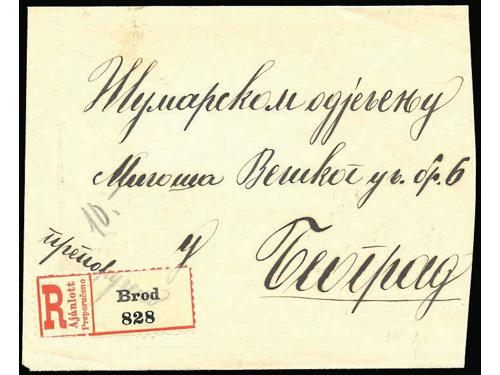 Шумарском одјељењу
Милоша Великог ул. бр. 6
10.
у
Београд
препоручено
R
Ajánlott
Preporučeno
Brod
828